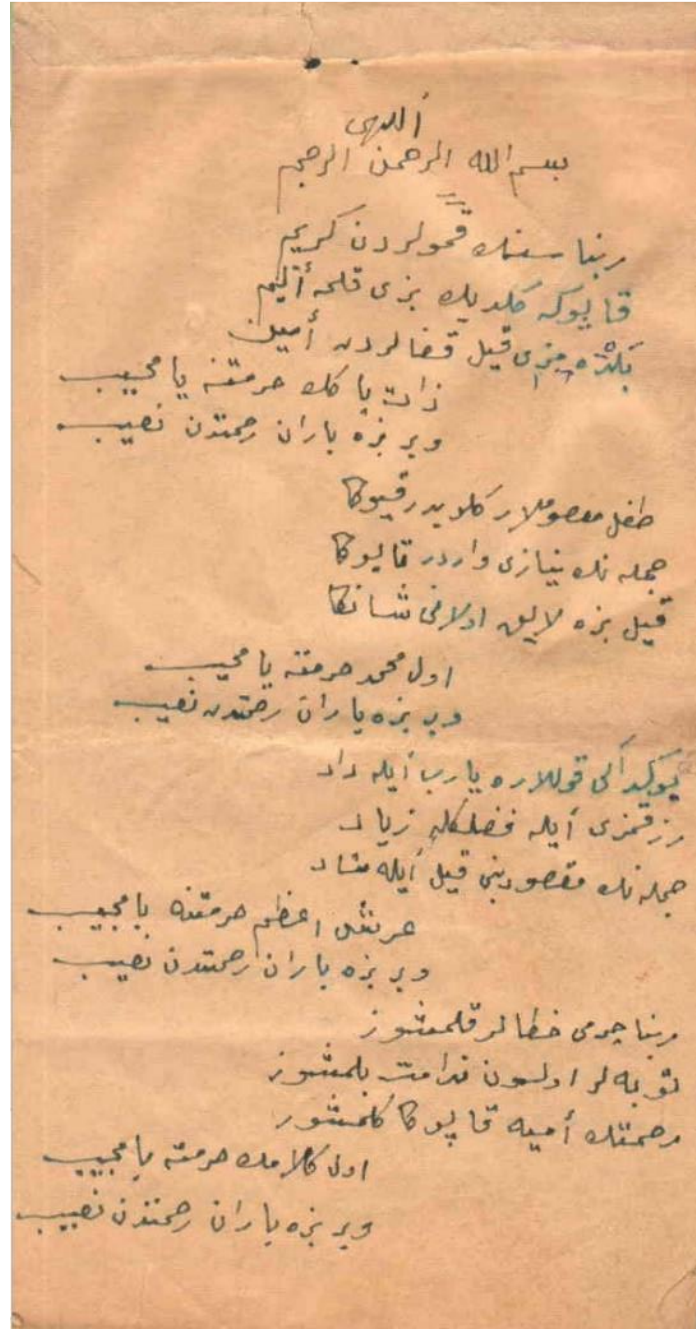 أللهى
بسم الله الرحمن الرحيم
ربنا سنك قمولردن كريم
قاپوكه كلديك بزى قلمه أليم
قيل قضالردن أمين
ذات پاكك حرمتنه يا مجيب
وير بزه باران رحمتدن نصيب
طفل معصوملار كلايدر قپوكا
جمله نك نيازى واردر قاپوكا
قيل بزه لايق اولانى شانكا
اول محمد حرمتنه يا مجيب
وير بزه باران رحمتدن نصيب
قوللاره يارب أيله داد
رزقمزى أيله فضلكله زياد
جمله نك مقصودينى قيل أيله شاد
عرش اعظم حرمتنه يا مجيب
وير بزه باران رحمتدن نصيب
ربنا جرمى خطالر قلمشوز
توبه لر اولسون ندامت بلمشوز
رحمتك أميه قاپوكا كلمشوز
اول كلامك حرمته يا مجيب
وير بزه باران رحمتدن نصيب